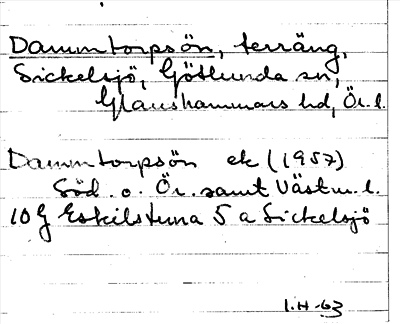 Dammtorpsön, terräng,
Sickelsjö, Götlunda sn,
Glanshammars hd, Ör. l.
Dammtorpsön ek (1957)
Söd. o. Ör. samt Västm. l.
10 G Eskilstuna 5 a Sickelsjö
I.H-63